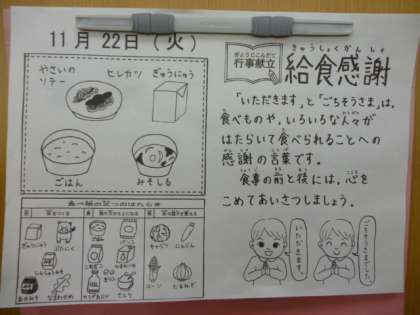 11月22日(火)
やさいの
ソテー
ヒレカツ
ぎゅうにゅう
ごはん
みそしる
ぎょうじこんだて
行事献立
きゅうしょくかんしゃ
給食感謝
「いただきます」と「ごちそうさま」は、
食べものや、いろいろな人々が
はたらいて食べられることへの
感謝の言葉です。
食事の前と後には、心を
こめてあいさつしましょう。
いただきます。
ごちそうさまでした。
ぎゅうにゅう
ぶたにく
ごはん
パン
キャベツ
にんじん
コーン
たまねぎ